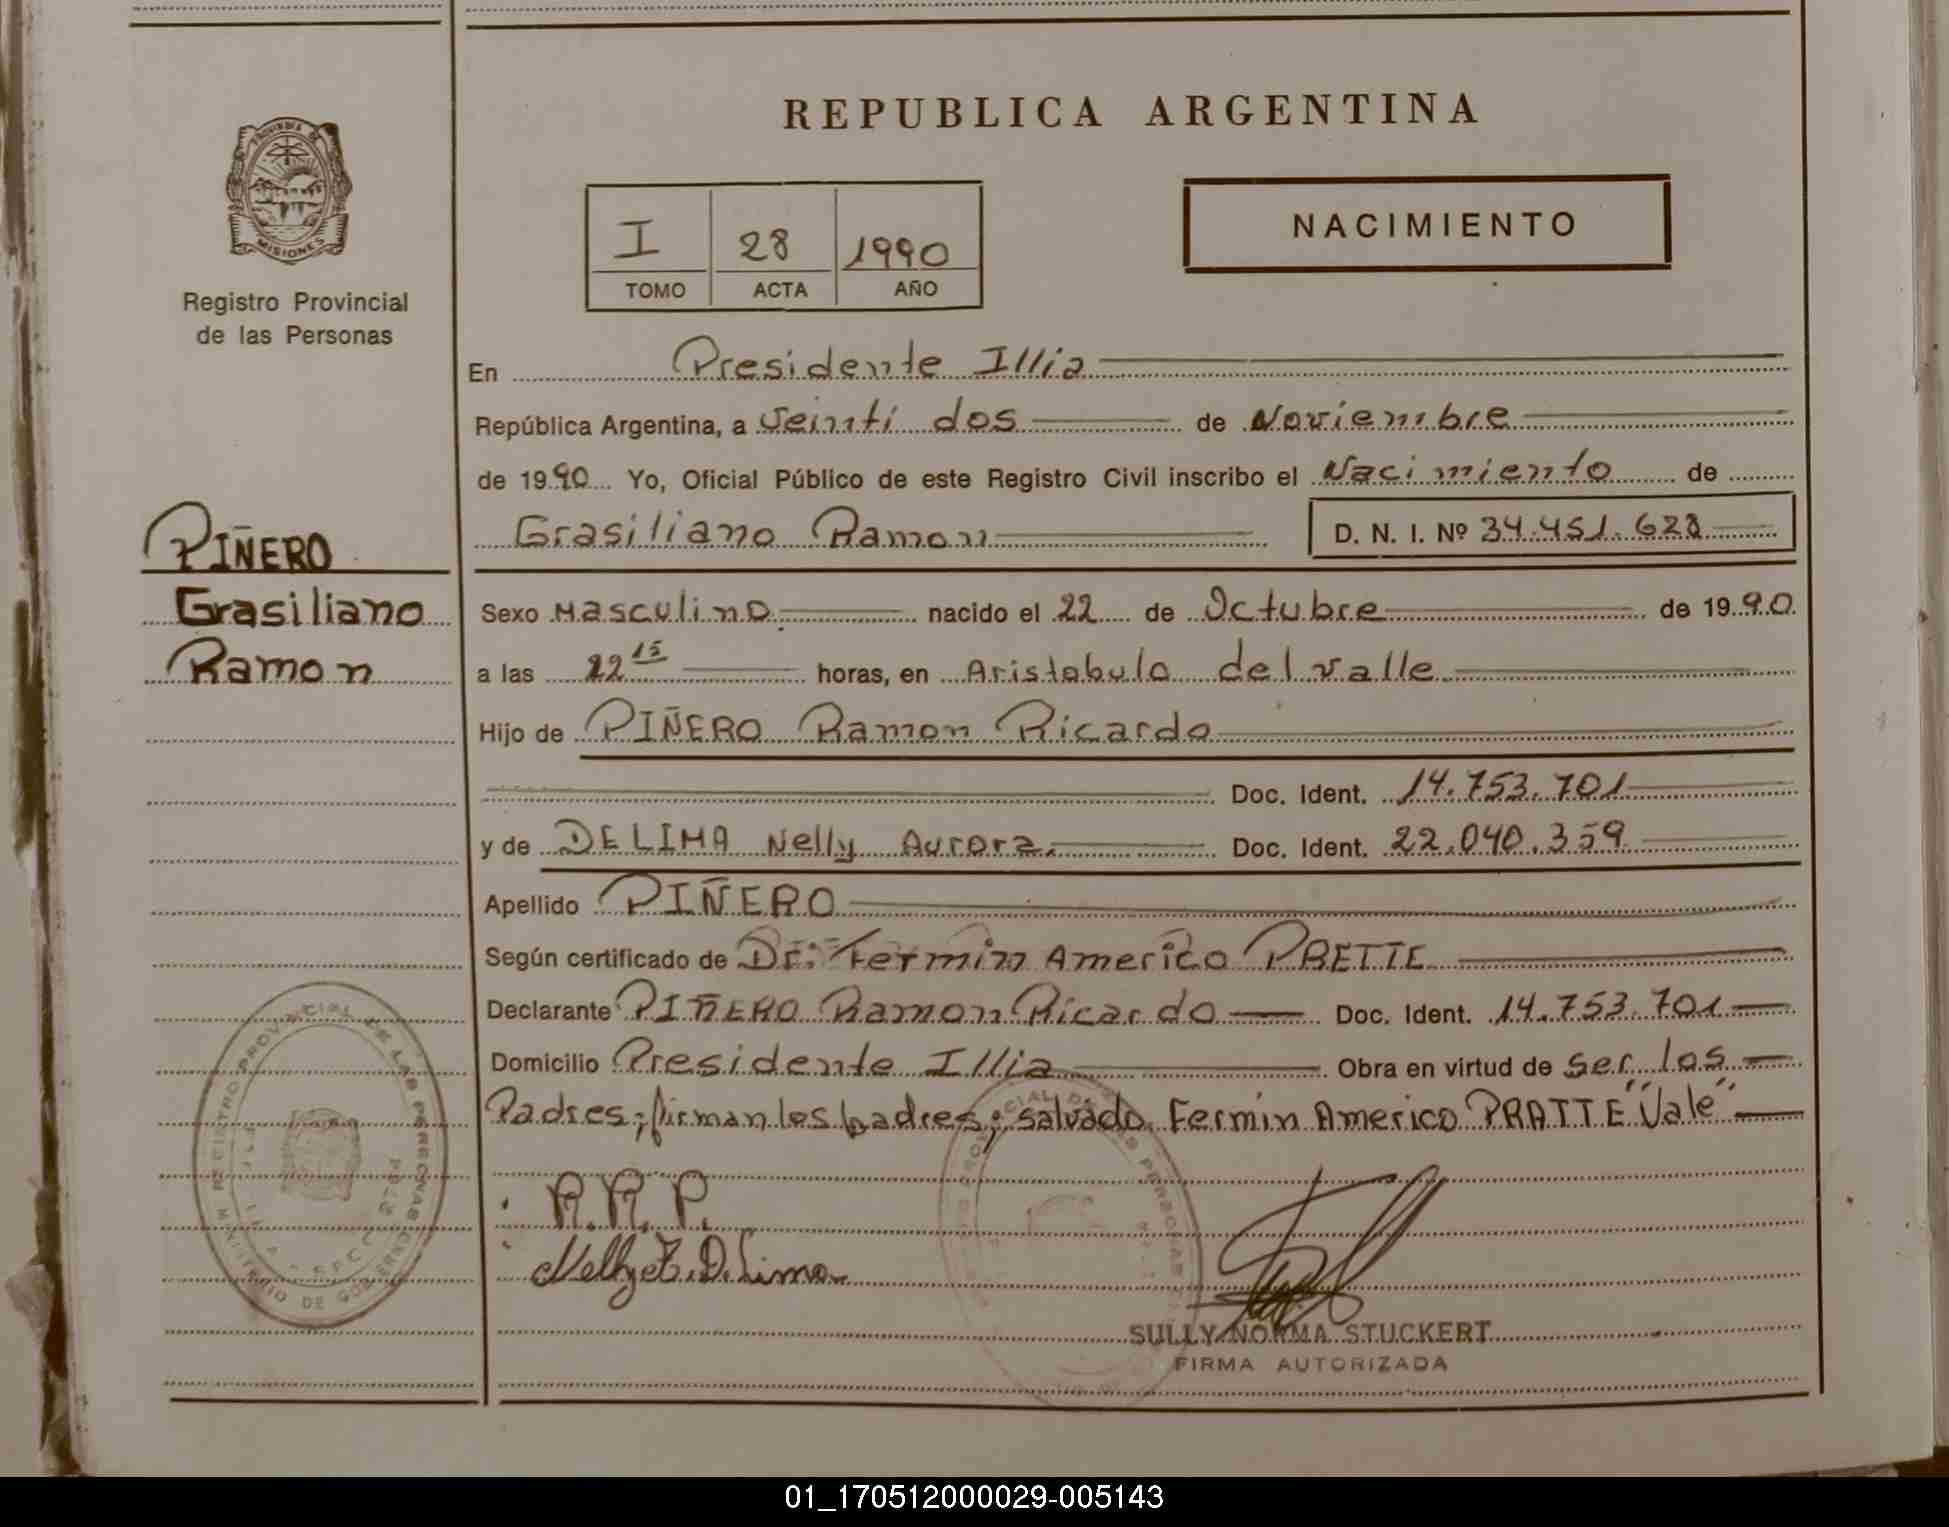 REPUBLICA ARGENTINA
PROVINCIA DE
MISIONES
Registro Provincial
de las Personas
I 28 1990
TOMO ACTA AÑO
NACIMIENTO
PIÑERO
Grasiliano
Ramon
En Presidente Illia
República Argentina, a Veinti dos de Noviembre
de 1990 Yo, Oficial Público de este Registro Civil inscribo el Nacimiento de
Grasiliano Ramon D. N. I. Nº 34.451.628
Sexo Masculino nacido el 22 de Octubre de 1990
a las 22 15 horas, en Aristobulo del valle
Hijo de PIÑERO Ramon Ricardo
Doc. Ident. 14.753.701
y de DELIMA Nelly Aurora. Doc. Ident. 22.040.359
Apellido PIÑERO
Según certificado de Dr: Fermin Americo PRETTE
Declarante PIÑERO Ramon Ricardo Doc. Ident. 14.753.701
Domicilio Presidente Illia Obra en virtud de ser los
Padres; firman los padres; salvado Fermin Americo PRATTE "Vale"
R. R. P.
Nelly D. Lima
SULLY NORMA STUCKERT
FIRMA AUTORIZADA
REGISTRO PROVINCIAL DE LAS PERSONAS
MINISTERIO DE GOBIERNO
01_170512000029-005143